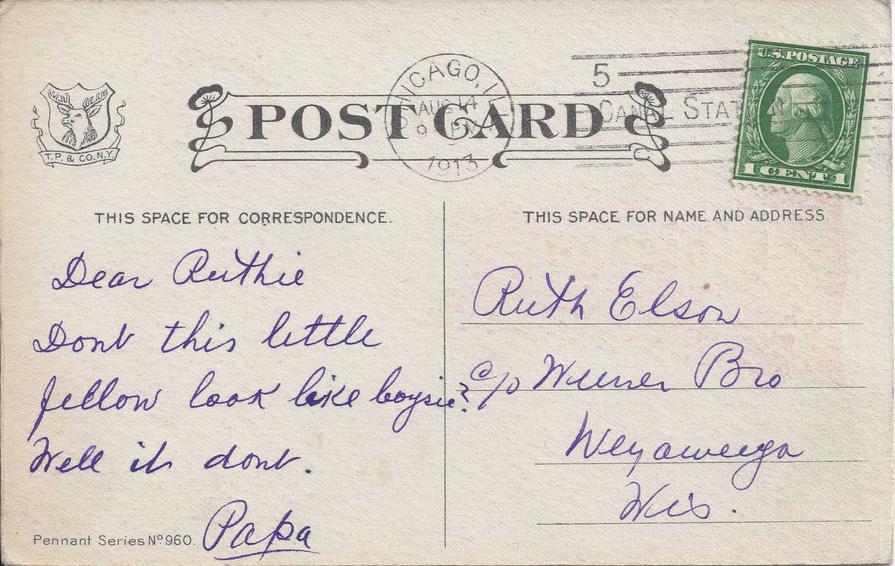 U.S. POSTAGE
CHICAGO, ILL
AUG 14
9 PM
1913
5
CANAL STAT
1 CENT 1
T. P. & CO. N.Y.
POST CARD
THIS SPACE FOR CORRESPONDENCE.
Dear Ruthie
Dont this little
fellow look like boysie?
Well it dont.
Papa
Pennant Series Nº 960.
THIS SPACE FOR NAME AND ADDRESS.
Ruth Elson
c/o Bro
Weyauwega
Wis.